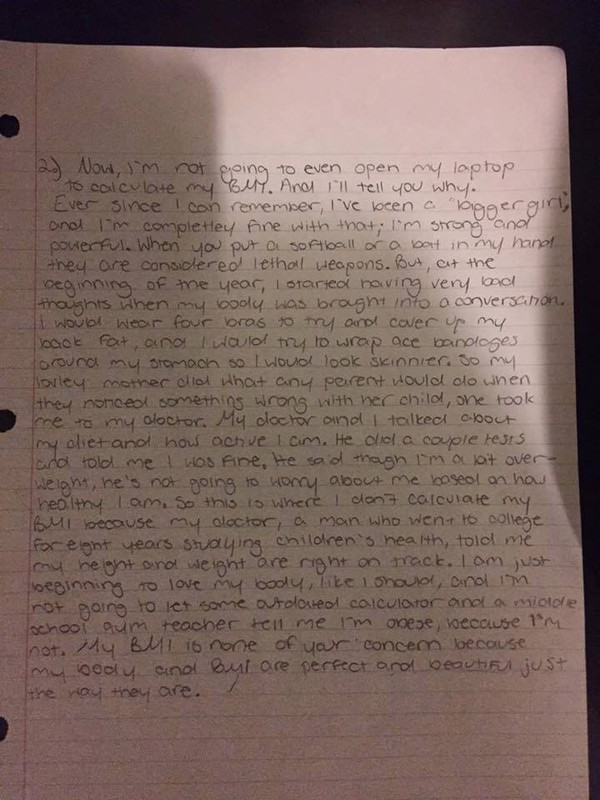 2.) Now, I'm not going to even open my laptop
to calculate my BMI. And I'll tell you why.
Ever since I can remember, I've been a "bigger girl,"
and I'm completley fine with that; I'm strong and
powerful. When you put a softball or a bat in my hand
they are considered lethal weapons. But, at the
beginning of the year, I started having very bad
thoughts when my body was brought into a conversation.
I would wear four bras to try and cover up my
back fat, and I would try to wrap ace bandages
around my stomach so I would look skinnier. So my
lovley mother did what any parent would do when
they noticed something wrong with her child, she took
me to my doctor. My doctor and I talked about
my diet and how active I am. He did a couple tests
and told me I was fine. He said though I'm a bit over-
weight, he's not going to worry about me based on how
healthy I am. So this is where I don't calculate my
BMI because my doctor, a man who went to college
for eight years studying children's health, told me
my height and weight are right on track. I am just
beginning to love my body, like I should, and I'm
not going to let some outdated calculator and a middle
school gym teacher tell me I'm obese, because I'm
not. My BMI is none of your concern because
my body and BMI are perfect and beautiful just
the way they are.